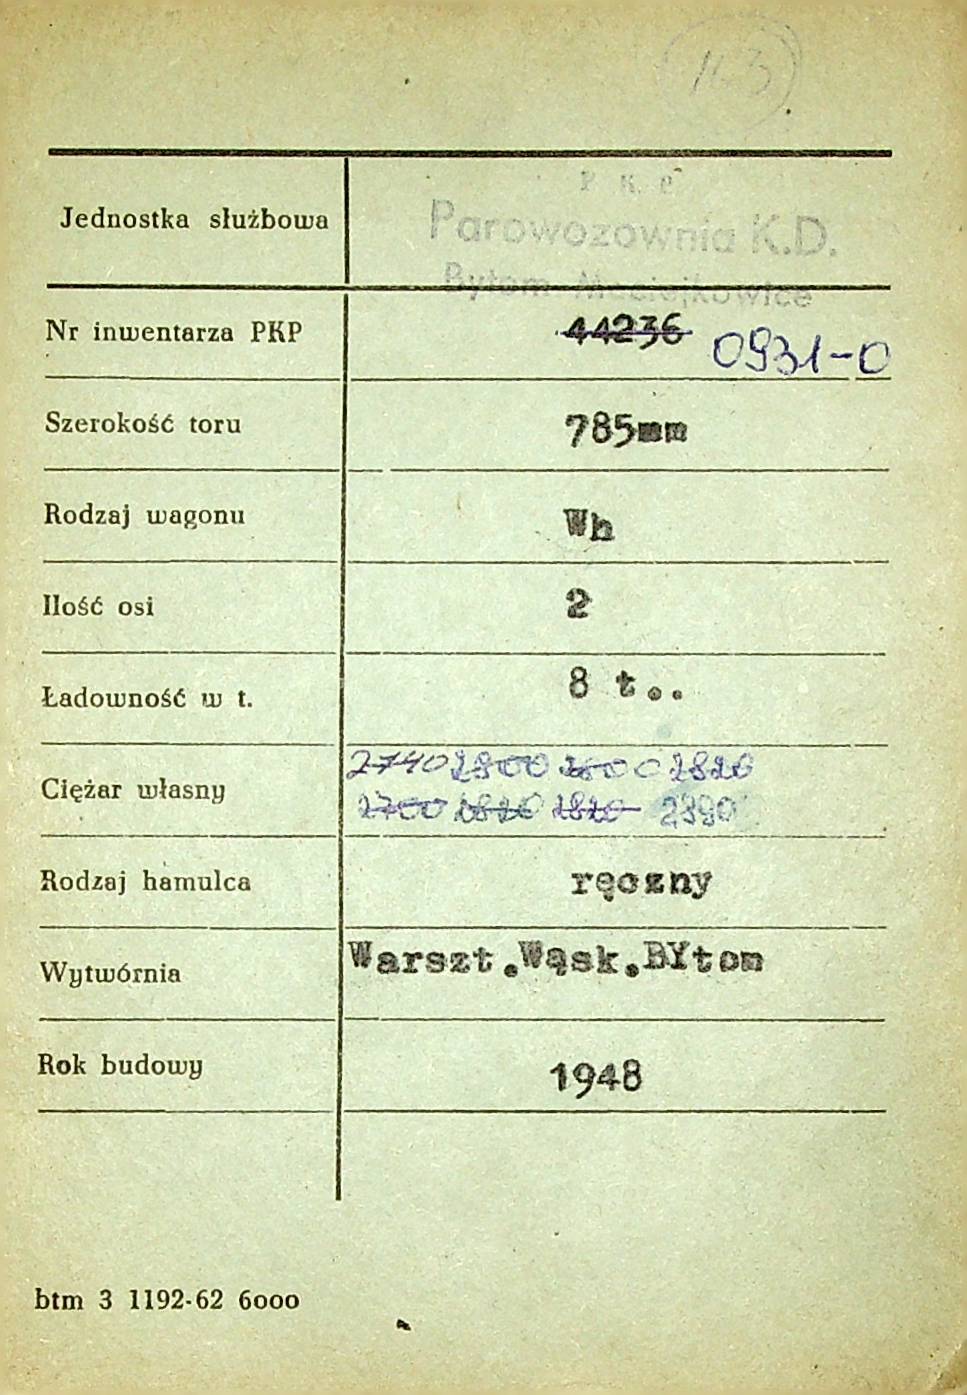 163
P K P
Jednostka służbowa Parowozownia K.D.
Bytom Maciejkowice
Nr inwentarza PKP 44236 0931-0
Szerokość toru 785mm
Rodzaj wagonu Wh
Ilość osi 2
Ładowność w t. 8 t..
Ciężar własny 2740 2800 2820
2700 2820 2820 2390
Rodzaj hamulca ręczny
Wytwórnia Warszt.Wąsk.BYtom
Rok budowy 1948
btm 3 1192-62 6ooo